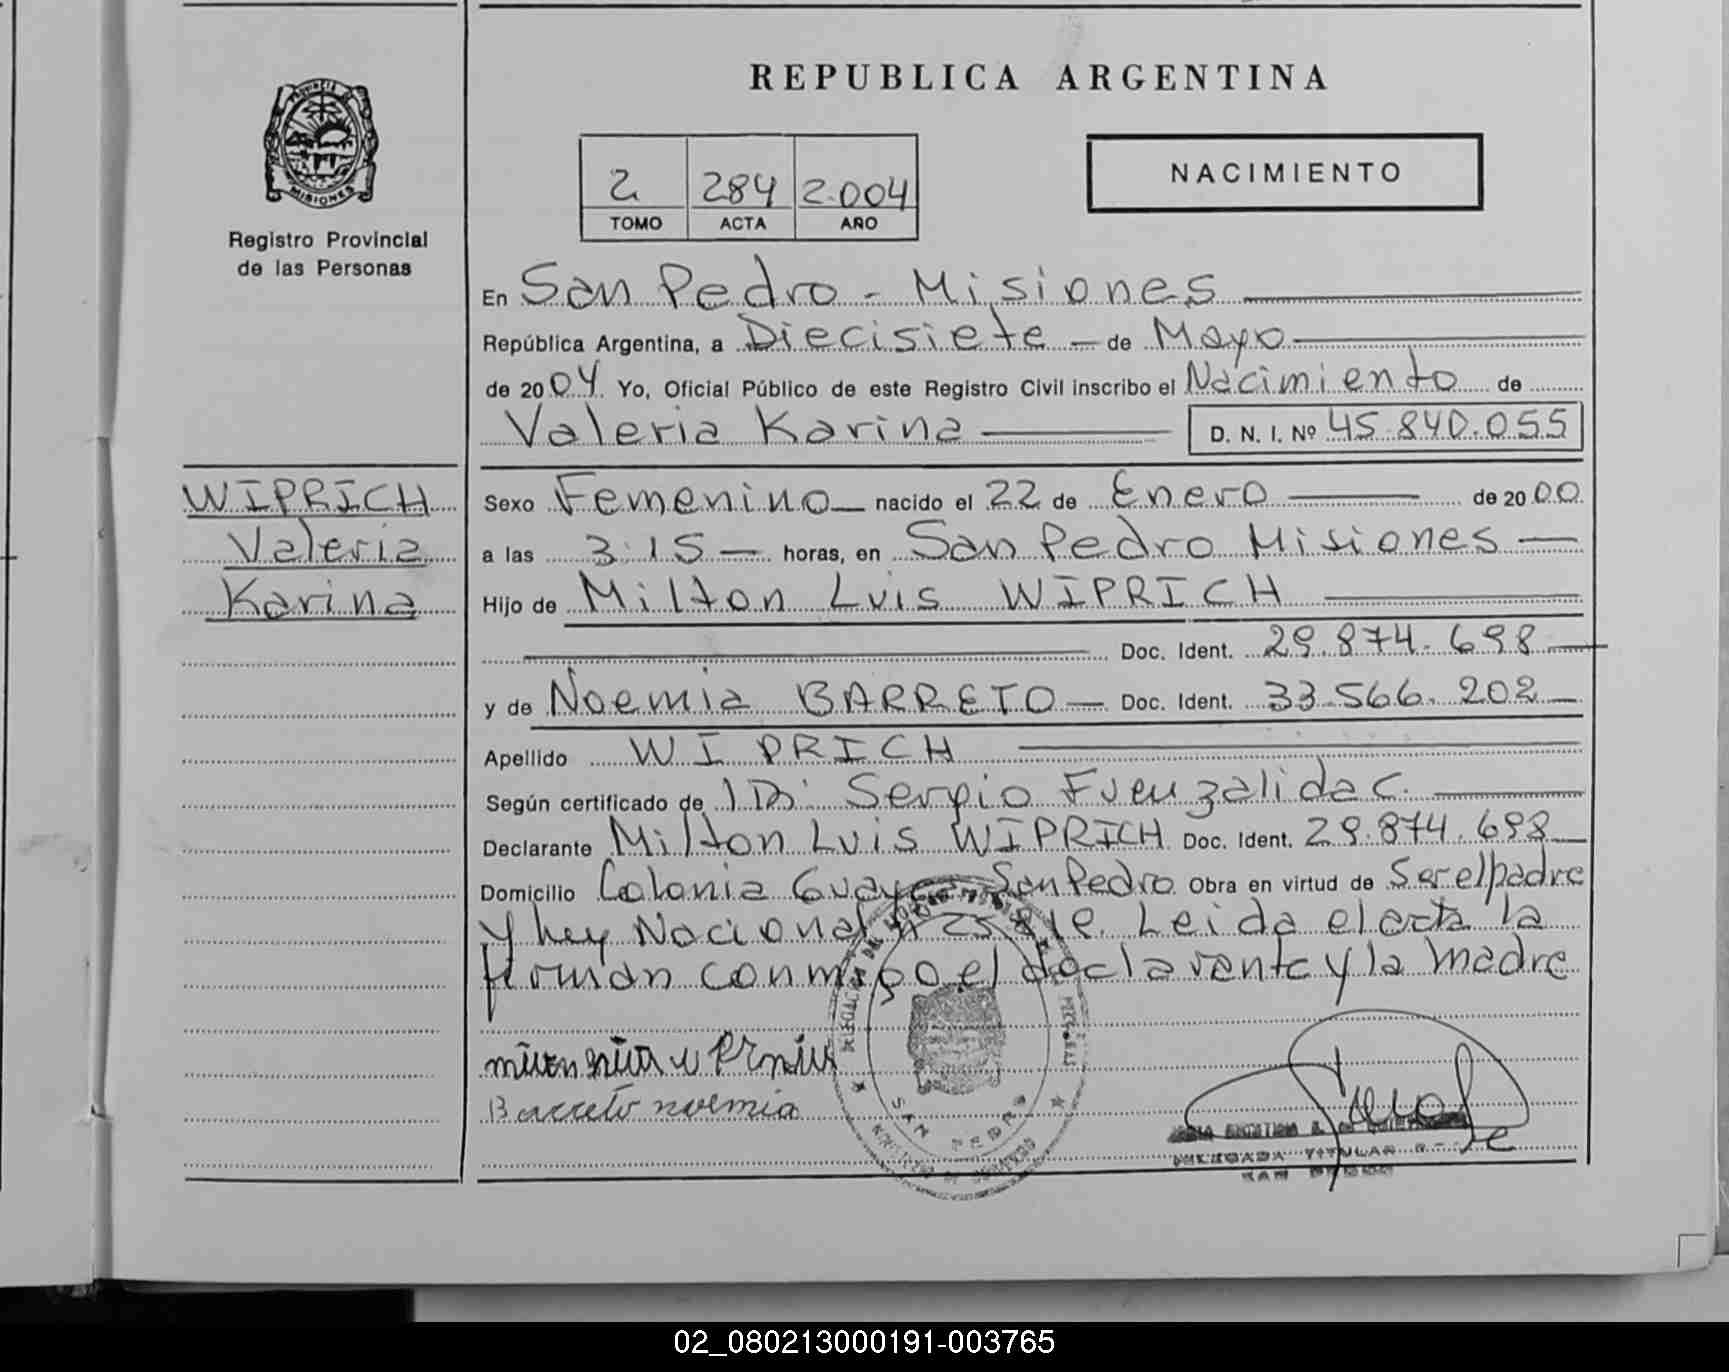 PROVINCIA DE
MISIONES
Registro Provincial
de las Personas
WIPRICH
Valeria
Karina
REPUBLICA ARGENTINA
2 284 2.004
TOMO ACTA AÑO
NACIMIENTO
En San Pedro - Misiones
República Argentina, a Diecisiete - de Mayo
de 2004 Yo, Oficial Público de este Registro Civil inscribo el Nacimiento de
Valeria Karina D. N. I. Nº 45.840.055
Sexo Femenino nacido el 22 de Enero de 2000
a las 3:15 horas, en San Pedro Misiones
Hijo de Milton Luis WIPRICH
Doc. Ident. 29.874.698
y de Noemia BARRETO Doc. Ident. 33.566.202
Apellido WIPRICH
Según certificado de Sergio Fuenzalida C.
Declarante Milton Luis WIPRICH Doc. Ident. 29.874.698
Domicilio Colonia San Pedro Obra en virtud de Ser el padre
y ley Nacional Leida el acta la
firman conmigo el declarante y la madre
Barreto noemia
SAN PEDRO
DELEGADA TITULAR
SAN PEDRO
02_080213000191-003765